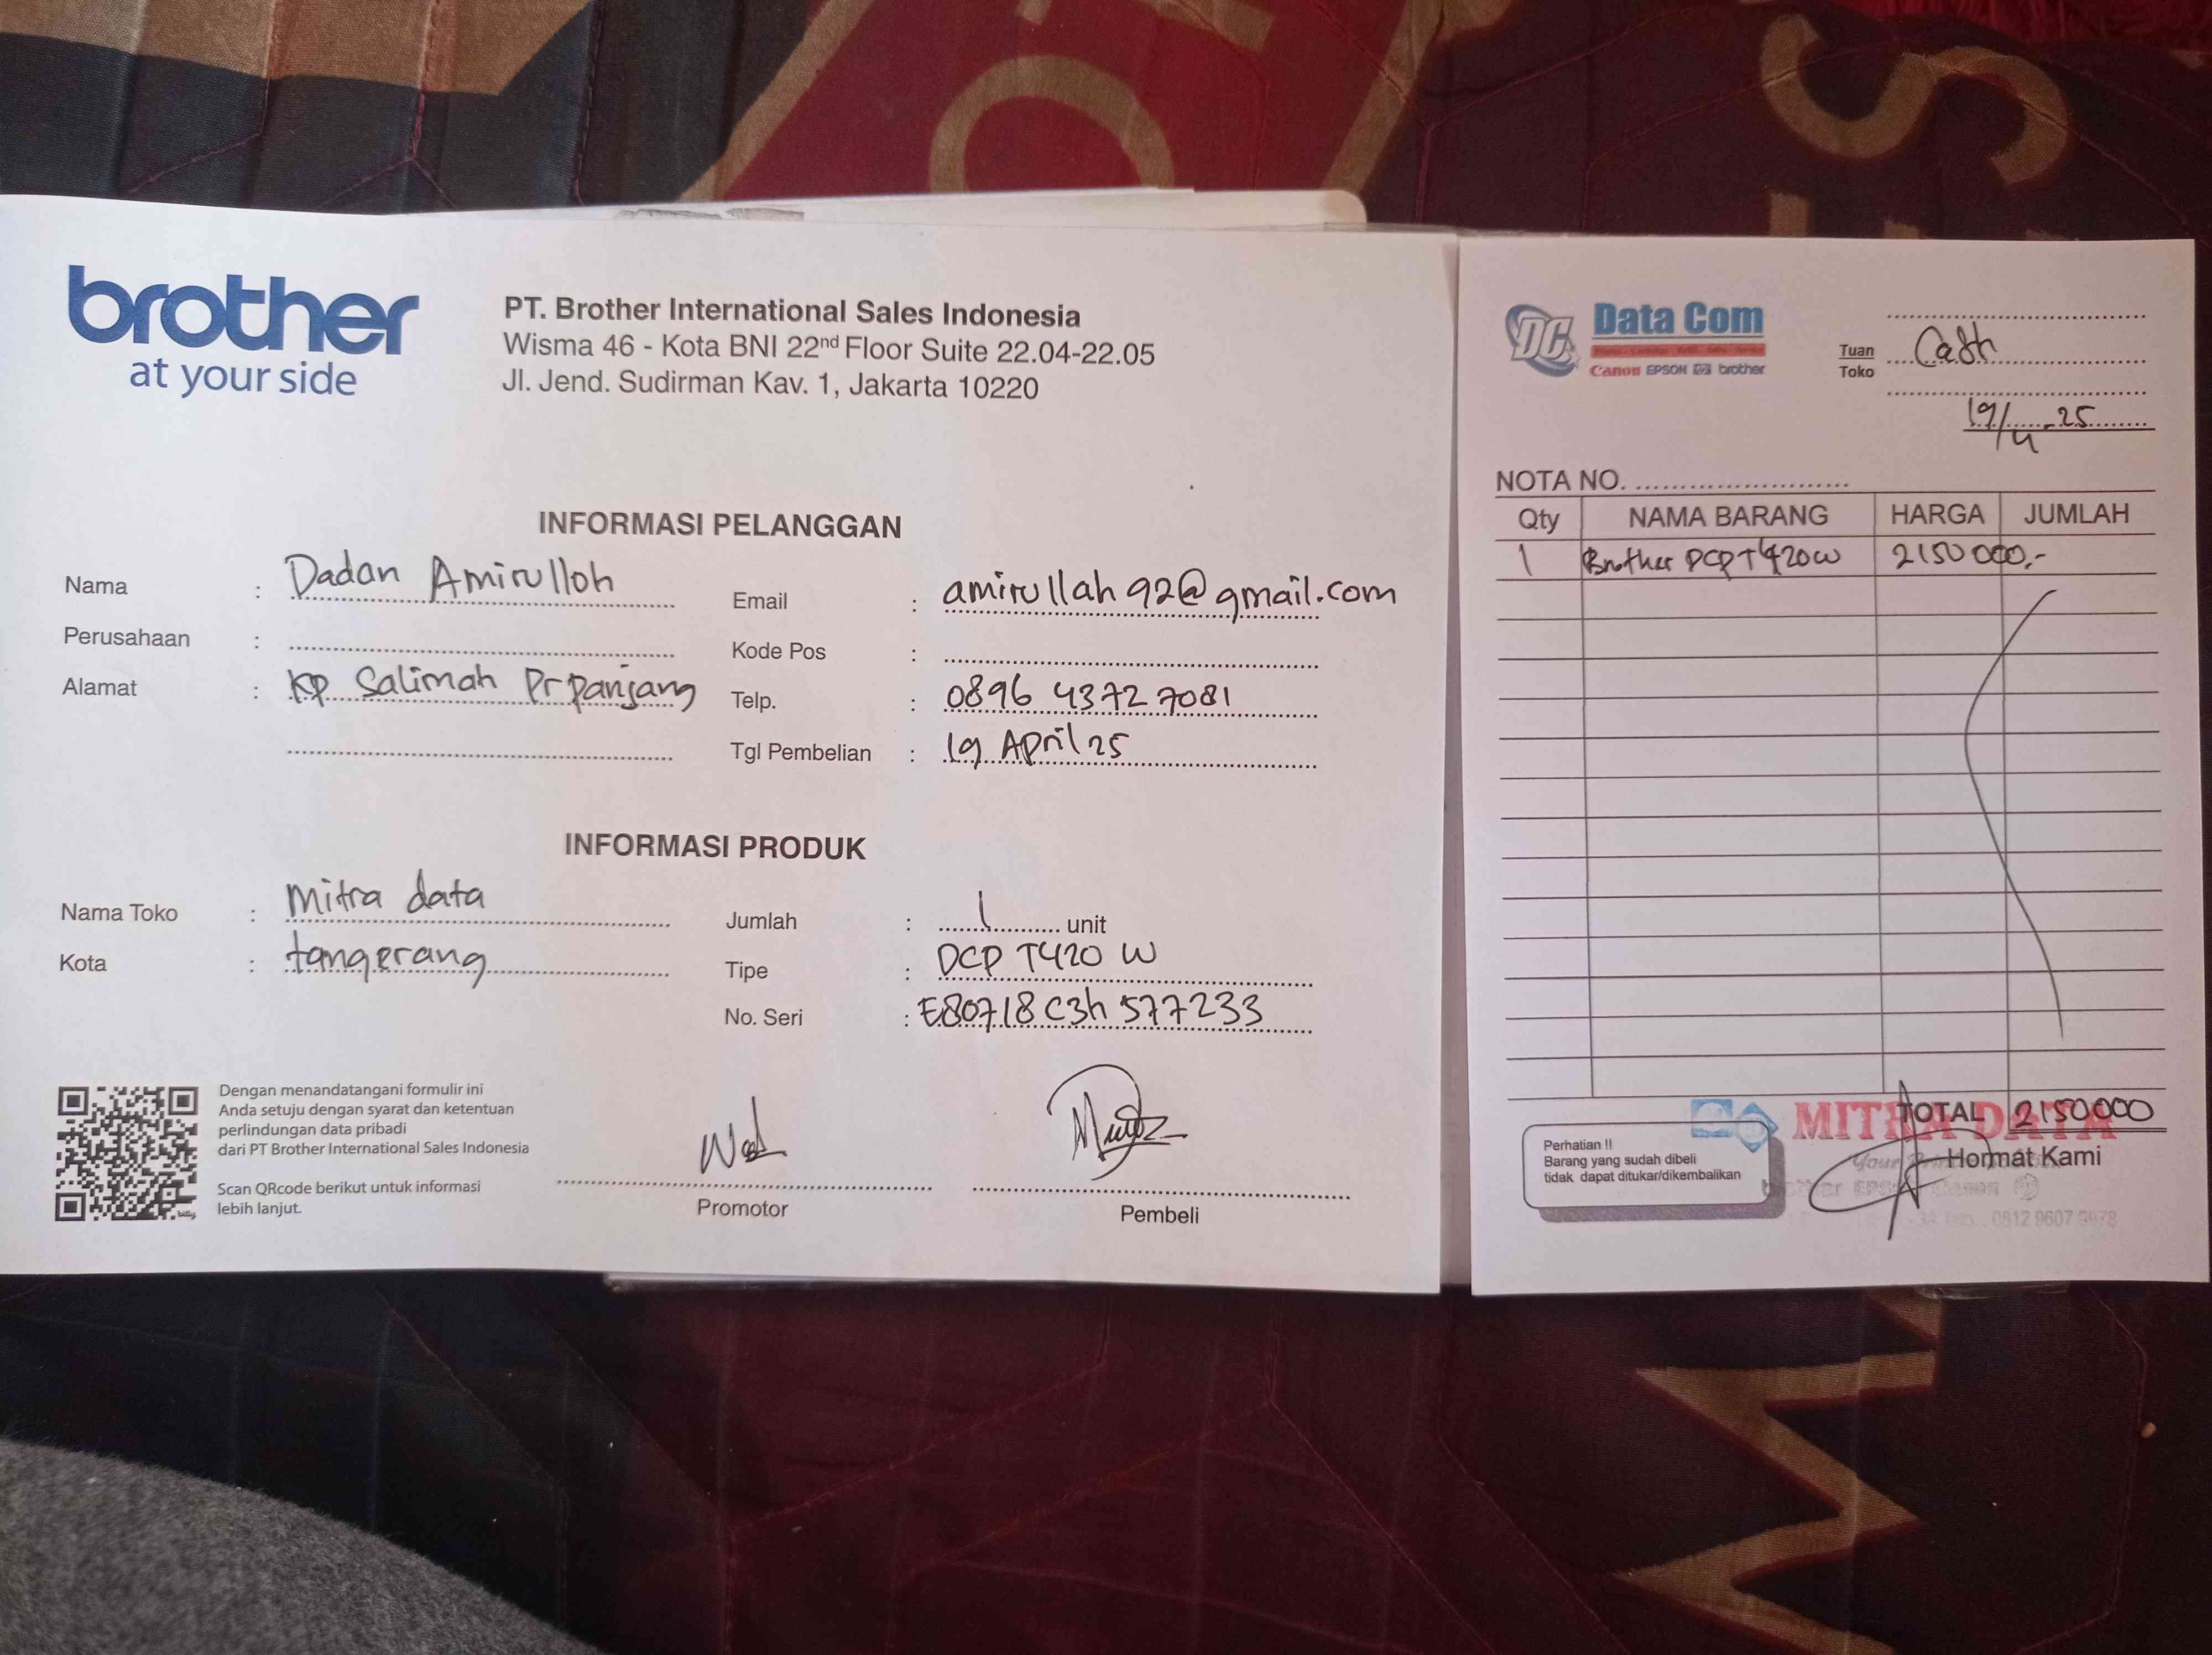 brother
at your side
PT. Brother International Sales Indonesia
Wisma 46 - Kota BNI 22nd Floor Suite 22.04-22.05
Jl. Jend. Sudirman Kav. 1, Jakarta 10220
INFORMASI PELANGGAN
Nama : Dadan Amirulloh
Perusahaan :
Alamat : Kp Salimah Pr panjang
Email : amirullah92@gmail.com
Kode Pos :
Telp. : 0896 4372 7081
Tgl Pembelian : 19 April 25
INFORMASI PRODUK
Nama Toko : Mitra data
Kota : tangerang
Jumlah : 1 unit
Tipe : DCP T420 W
No. Seri : E80718C3h 577233
Dengan menandatangani formulir ini
Anda setuju dengan syarat dan ketentuan
perlindungan data pribadi
dari PT Brother International Sales Indonesia
Scan QRcode berikut untuk informasi
lebih lanjut.
Promotor
Pembeli
DC Data Com
Canon EPSON hp brother
Tuan
Toko
Cash
19/4 - 25
NOTA NO.
Qty NAMA BARANG HARGA JUMLAH
1 Brother DCP T420W 2150000,-
TOTAL 2150000
MITRA DATA
Hormat Kami
Perhatian !!
Barang yang sudah dibeli
tidak dapat ditukar/dikembalikan